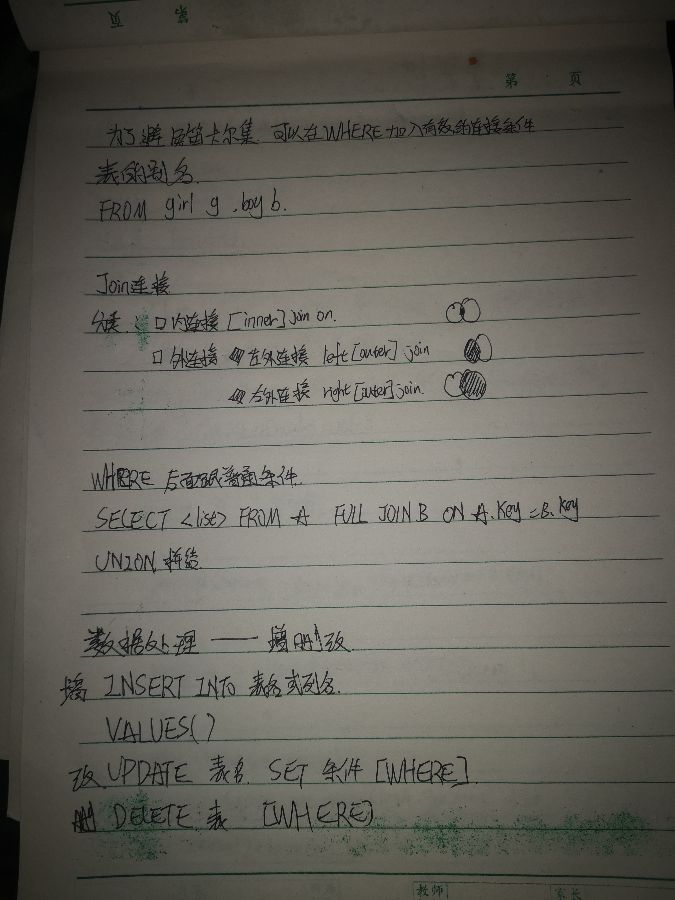 页 第
第 页
为了避免笛卡尔集 可以在WHERE加入有效的连接条件
表的别名
FROM girl g ,boy b.
Join连接
分类: 口内连接 [inner] join on.
口 外连接 左外连接 left [outer] join
右外连接 right [outer] join.
WHERE 后面跟普通条件.
SELECT <list> FROM A FULL JOIN B ON A.Key =B.Key
UNION 拼结
数据处理 —— 增删改
增 INSERT INTO 表名或列名.
VALUES()
改 UPDATE 表名 SET 条件 [WHERE]
删 DELETE 表 [WHERE]
教师 家长